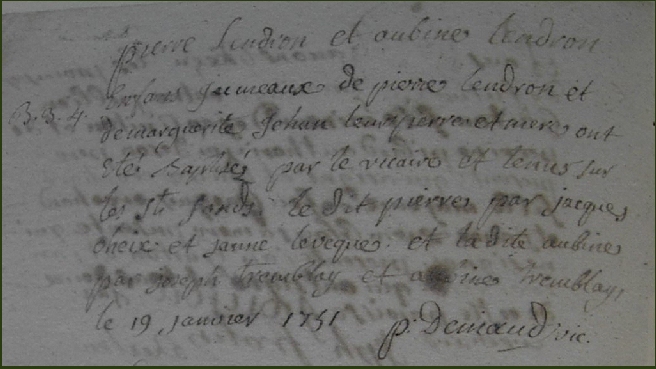 pierre Lendron et aubine lendron
B. B. 4. Enfans Jumeaux de pierre lendron et
de marguerite Jehan leurs perre et mere ont
eté baptisés par le vicaire et tenus sur
les Sts fonds. le dit pierre par jacques
et janne leveque. et ladite aubine
par joseph tremblay et tremblay,
le 19 janvier 1751 p. Deniaud vic.